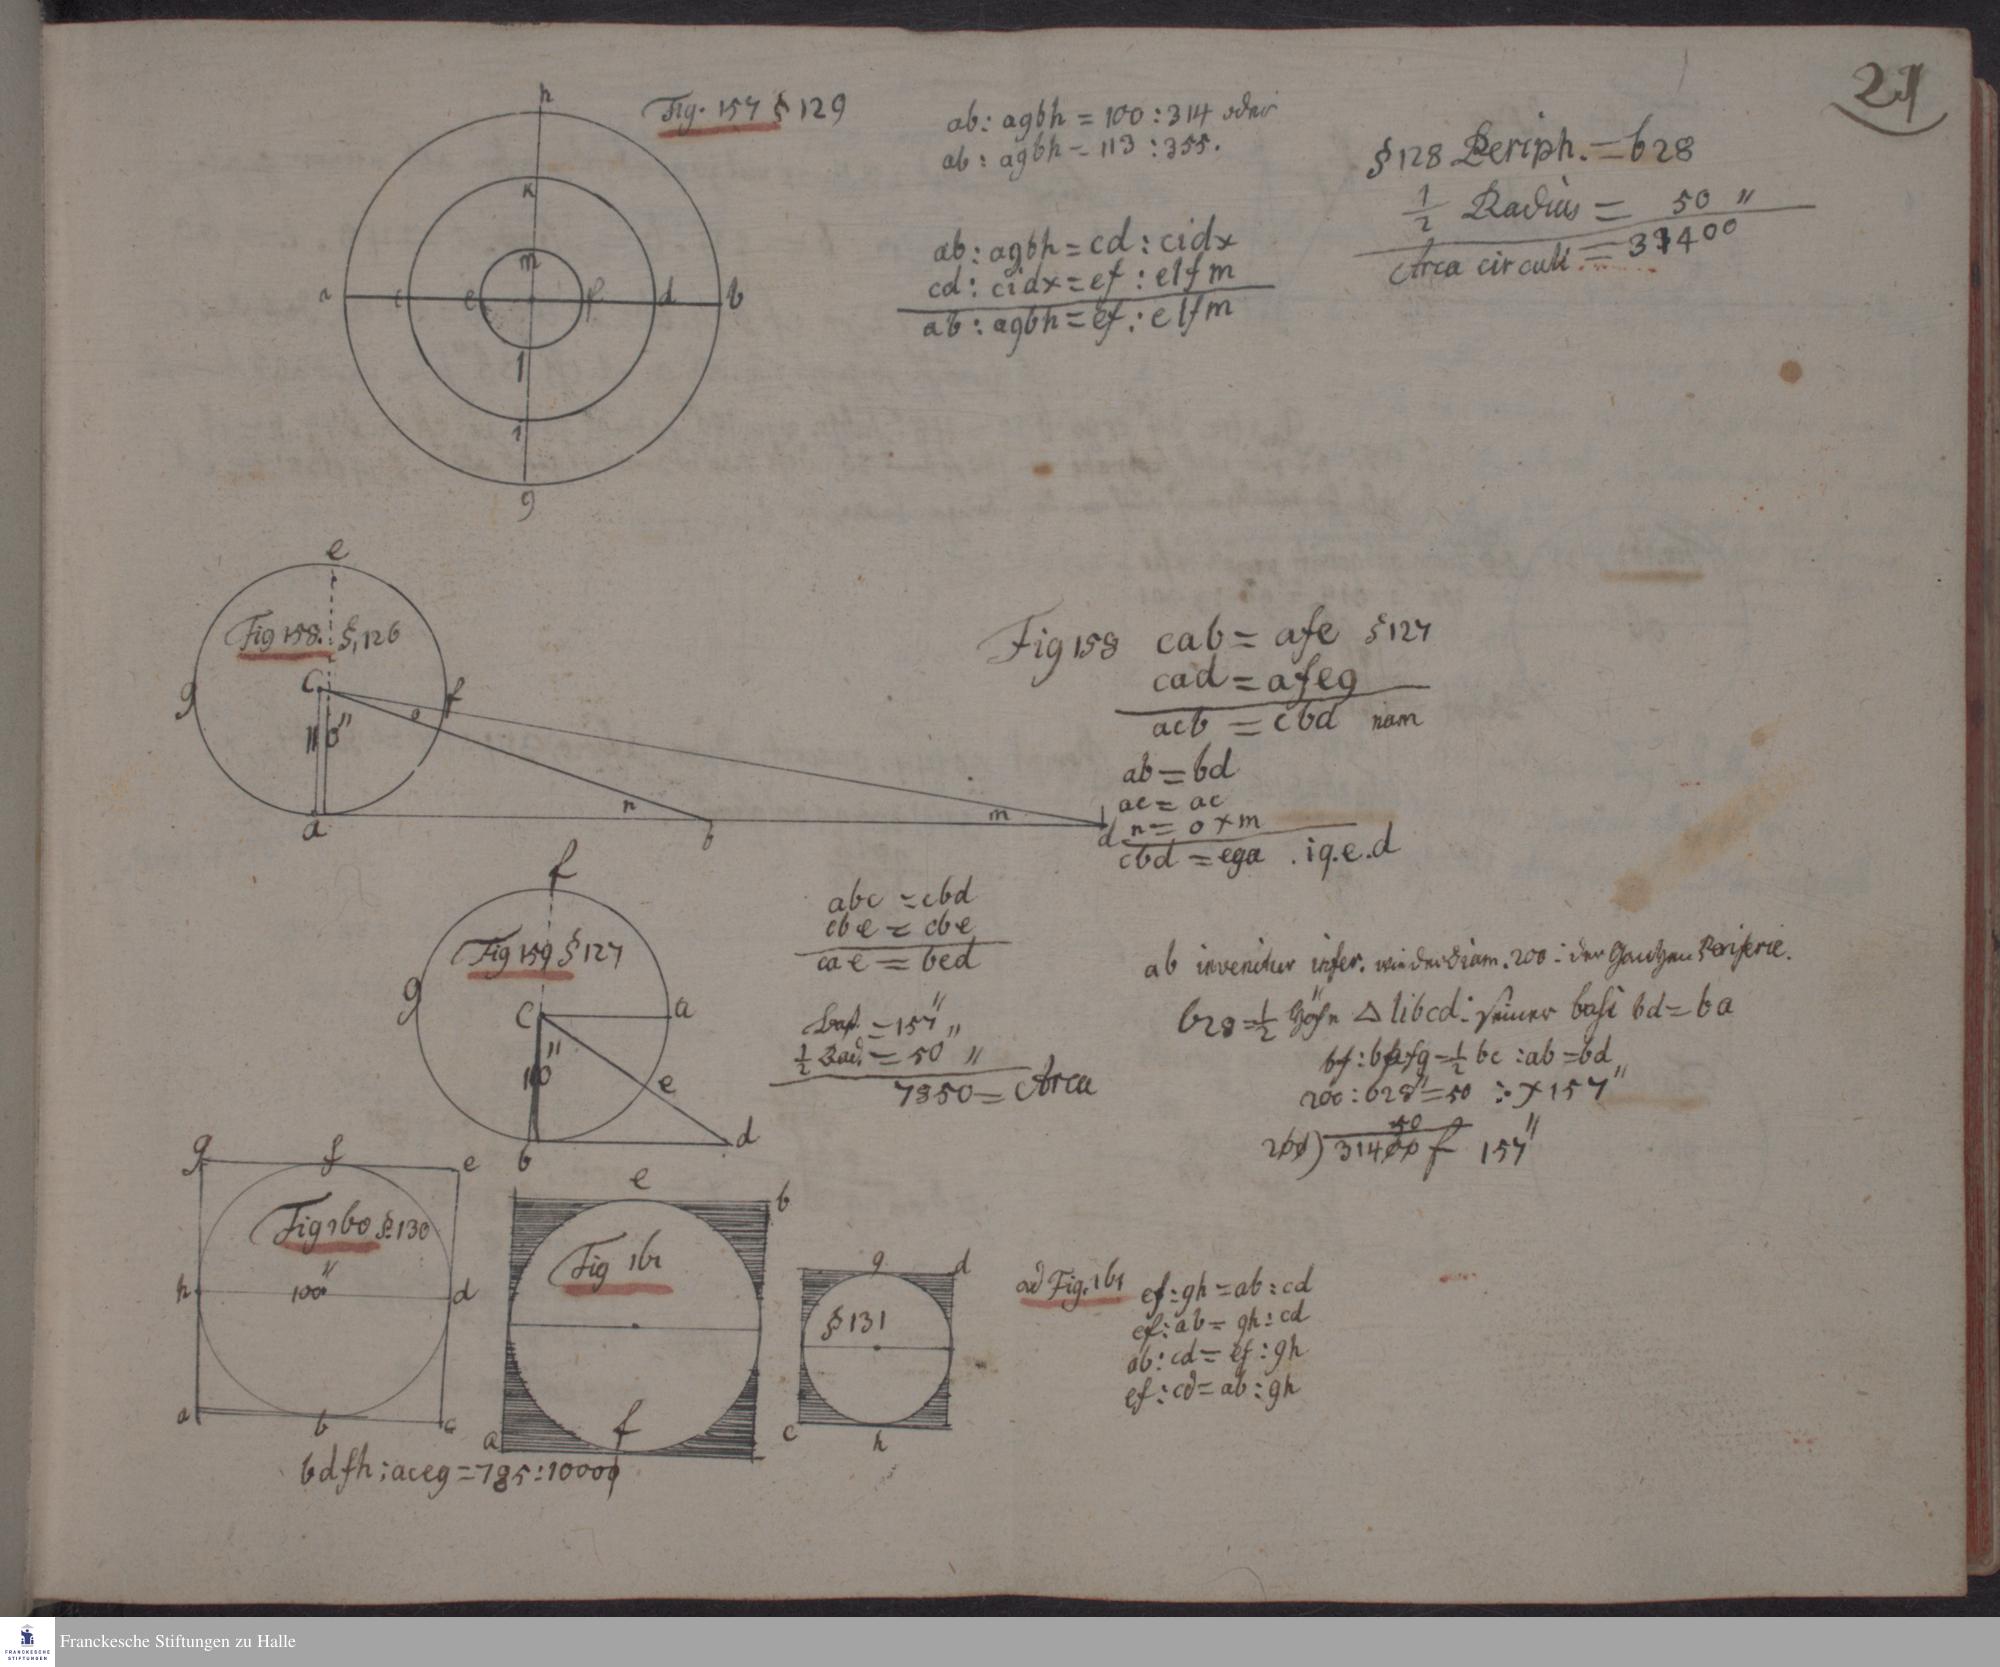 21
Fig. 157 § 129
h
k
m
a c e f d b
l
i
g
ab : agbh = 100 : 314 oder
ab : agbh = 113 : 355.
ab : agbh = cd : cidx
cd : cidx = ef : elfm
ab : agbh = ef : elfm
§ 128 Periph. = 628
1/2 Radius = 50 "
Area circuli = 31400
e
Fig 158. § 126
g c f
o
100"
n m
a b d
Fig 158 cab = afe § 127
cad = afeg
acb = cbd nam
ab = bd
ac = ac
n = o x m
cbd = ega . i q.e.d
f
Fig 159 § 127
g c a
100"
e
b d
abc = cbd
cbe = cbe
cae = bed
Bas. = 157"
1/2 Rad. = 50 "
7850 = Area
ab invenitur infer. wie der Diam. 200 : der Gantzen Periferie.
628 = 1/2 Höhe Δ li bcd : seiner basi bd = ba
bf : bafg = 1/2 bc : ab = bd
200 : 628" = 50 : x 157"
50
200) 31400 f 157"
g f e
Fig 160 § 130
h 100" d
a b c
bdfh : aceg = 785 : 1000
e b
Fig 161
a f
g d
§ 131
c h
ad Fig. 161
ef : gh = ab : cd
ef : ab = gh : cd
ab : cd = ef : gh
ef : cd = ab : gh
Franckesche Stiftungen zu Halle
FRANCKESCHE
STIFTUNGEN